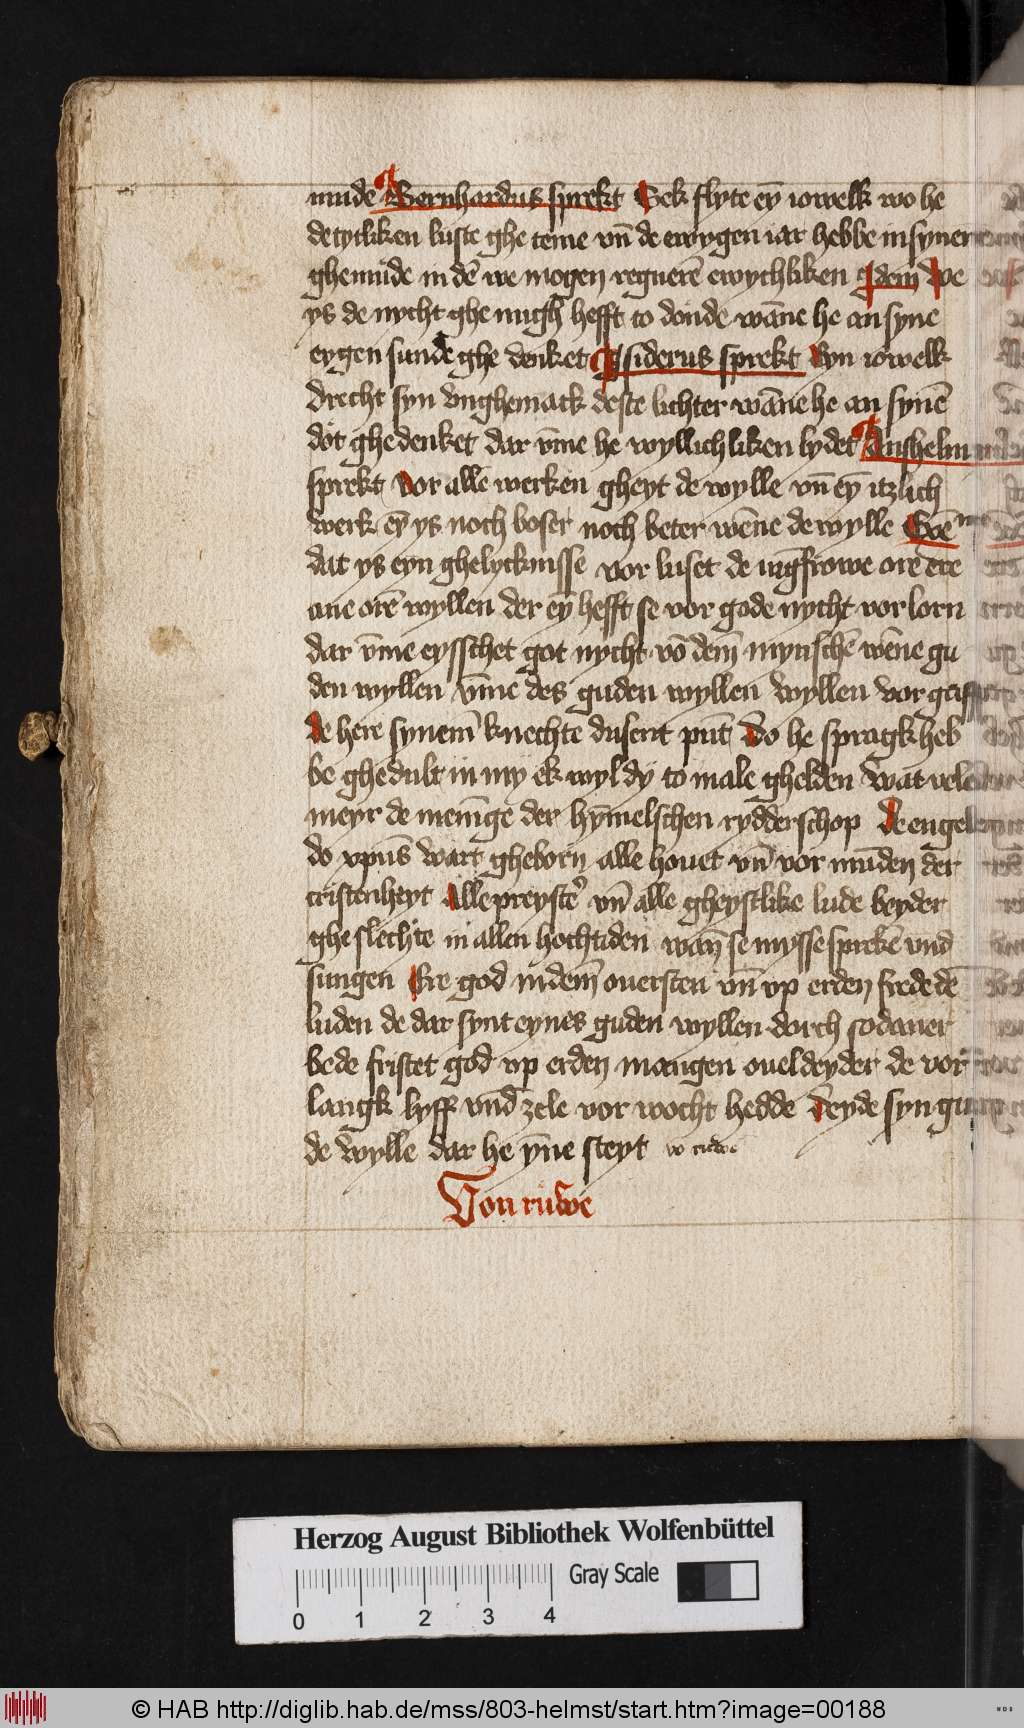 mude Bernhardus sprekt Sek flyte ey̅ iowelk wo he
de tytliken luste ghe teme vn̅ de ewygen iar hebbe in syner
ghemude in de̅ we mogen regnere̅ ewychliken Idem We
ys de nycht ghe nugh hefft to donde wa̅ne he an syne
eygen sunde ghe denket Isiderus sprekt Eyn iowelk
drecht syn vnghemack deste lichter wa̅ne he an syne̅
dot ghedenket dar v̅me he wyllichliken lydet Anshelm
sprekt Vor alle̅ werken gheyt de wylle vn̅ ey̅ itzlich
werk ey̅ ys noch boser noch beter we̅ne de wylle
dat ys eyn ghelycknisse vor luset de iu̅gfrowe ore ere
ane ore̅ wyllen der ey̅ hefft se vor gode nycht vorlorn
dar v̅me eysschet got nycht vo̅ dem̅ mynsche̅ we̅ne gu
den wyllen v̅me des guden wyllen wyllen vor
de here synem̅ knechte dusent pu̅t Do he spragk heb
be ghedult in my ek wyl dy to male ghelden Wat
meyr de meni̅ge der hy̅melschen rydderschop De engel
do xpu̅s wart gheborn alle houet vn̅ vor mu̅den der
cristenheyt Alle preyster vn̅ alle gheystlike lude beyder
ghe slechte in allen hochtiden wan̅ se mysse spreke̅ vnd
sungen Ere god in dem̅ ouersten vn̅ vp erden frede de̅
luden de dar synt eynes guden wyllen dorch sodaner
bede fristet god vp erden mangen oueldeyder de vor
langk lyff vnd zele vor wocht hedde Dreyde syn gu
de wylle dar he y̅ne steyt
Von ruwe
Herzog August Bibliothek Wolfenbüttel
Gray Scale
0 1 2 3 4
© HAB http://diglib.hab.de/mss/803-helmst/start.htm?image=00188